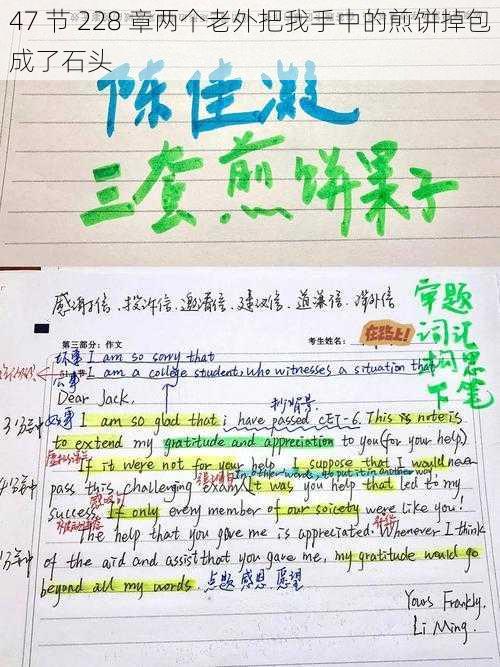 47 节 228 章两个老外把我手中的煎饼掉包
成了石头
陈佳凝
三套煎饼果子
感谢信、投诉信、邀请信、建议信、道歉信、
审题
词汇
构思
下笔
第三部分：作文
考生姓名：
在路上!
坏事 I am so sorry that
公事 I am a college student, who witnesses a situation that
Dear Jack,
好事 I am so glad that i have passed CET-6. This is note is
to extend my gratitude and appreciation to you (for your help)
If it were not for your help, I suppose that I would never
In other words, to put it in another way
pass this challenging exam. It was you help that led to my
success. If only every member of our soicety were like you!
The help that you gave me is appreciated. Whenever I think
of the aid and assist that you gave me, my gratitude would go
beyond all my words. 点题 感恩 愿望
Yours Frankly,
Li Ming.